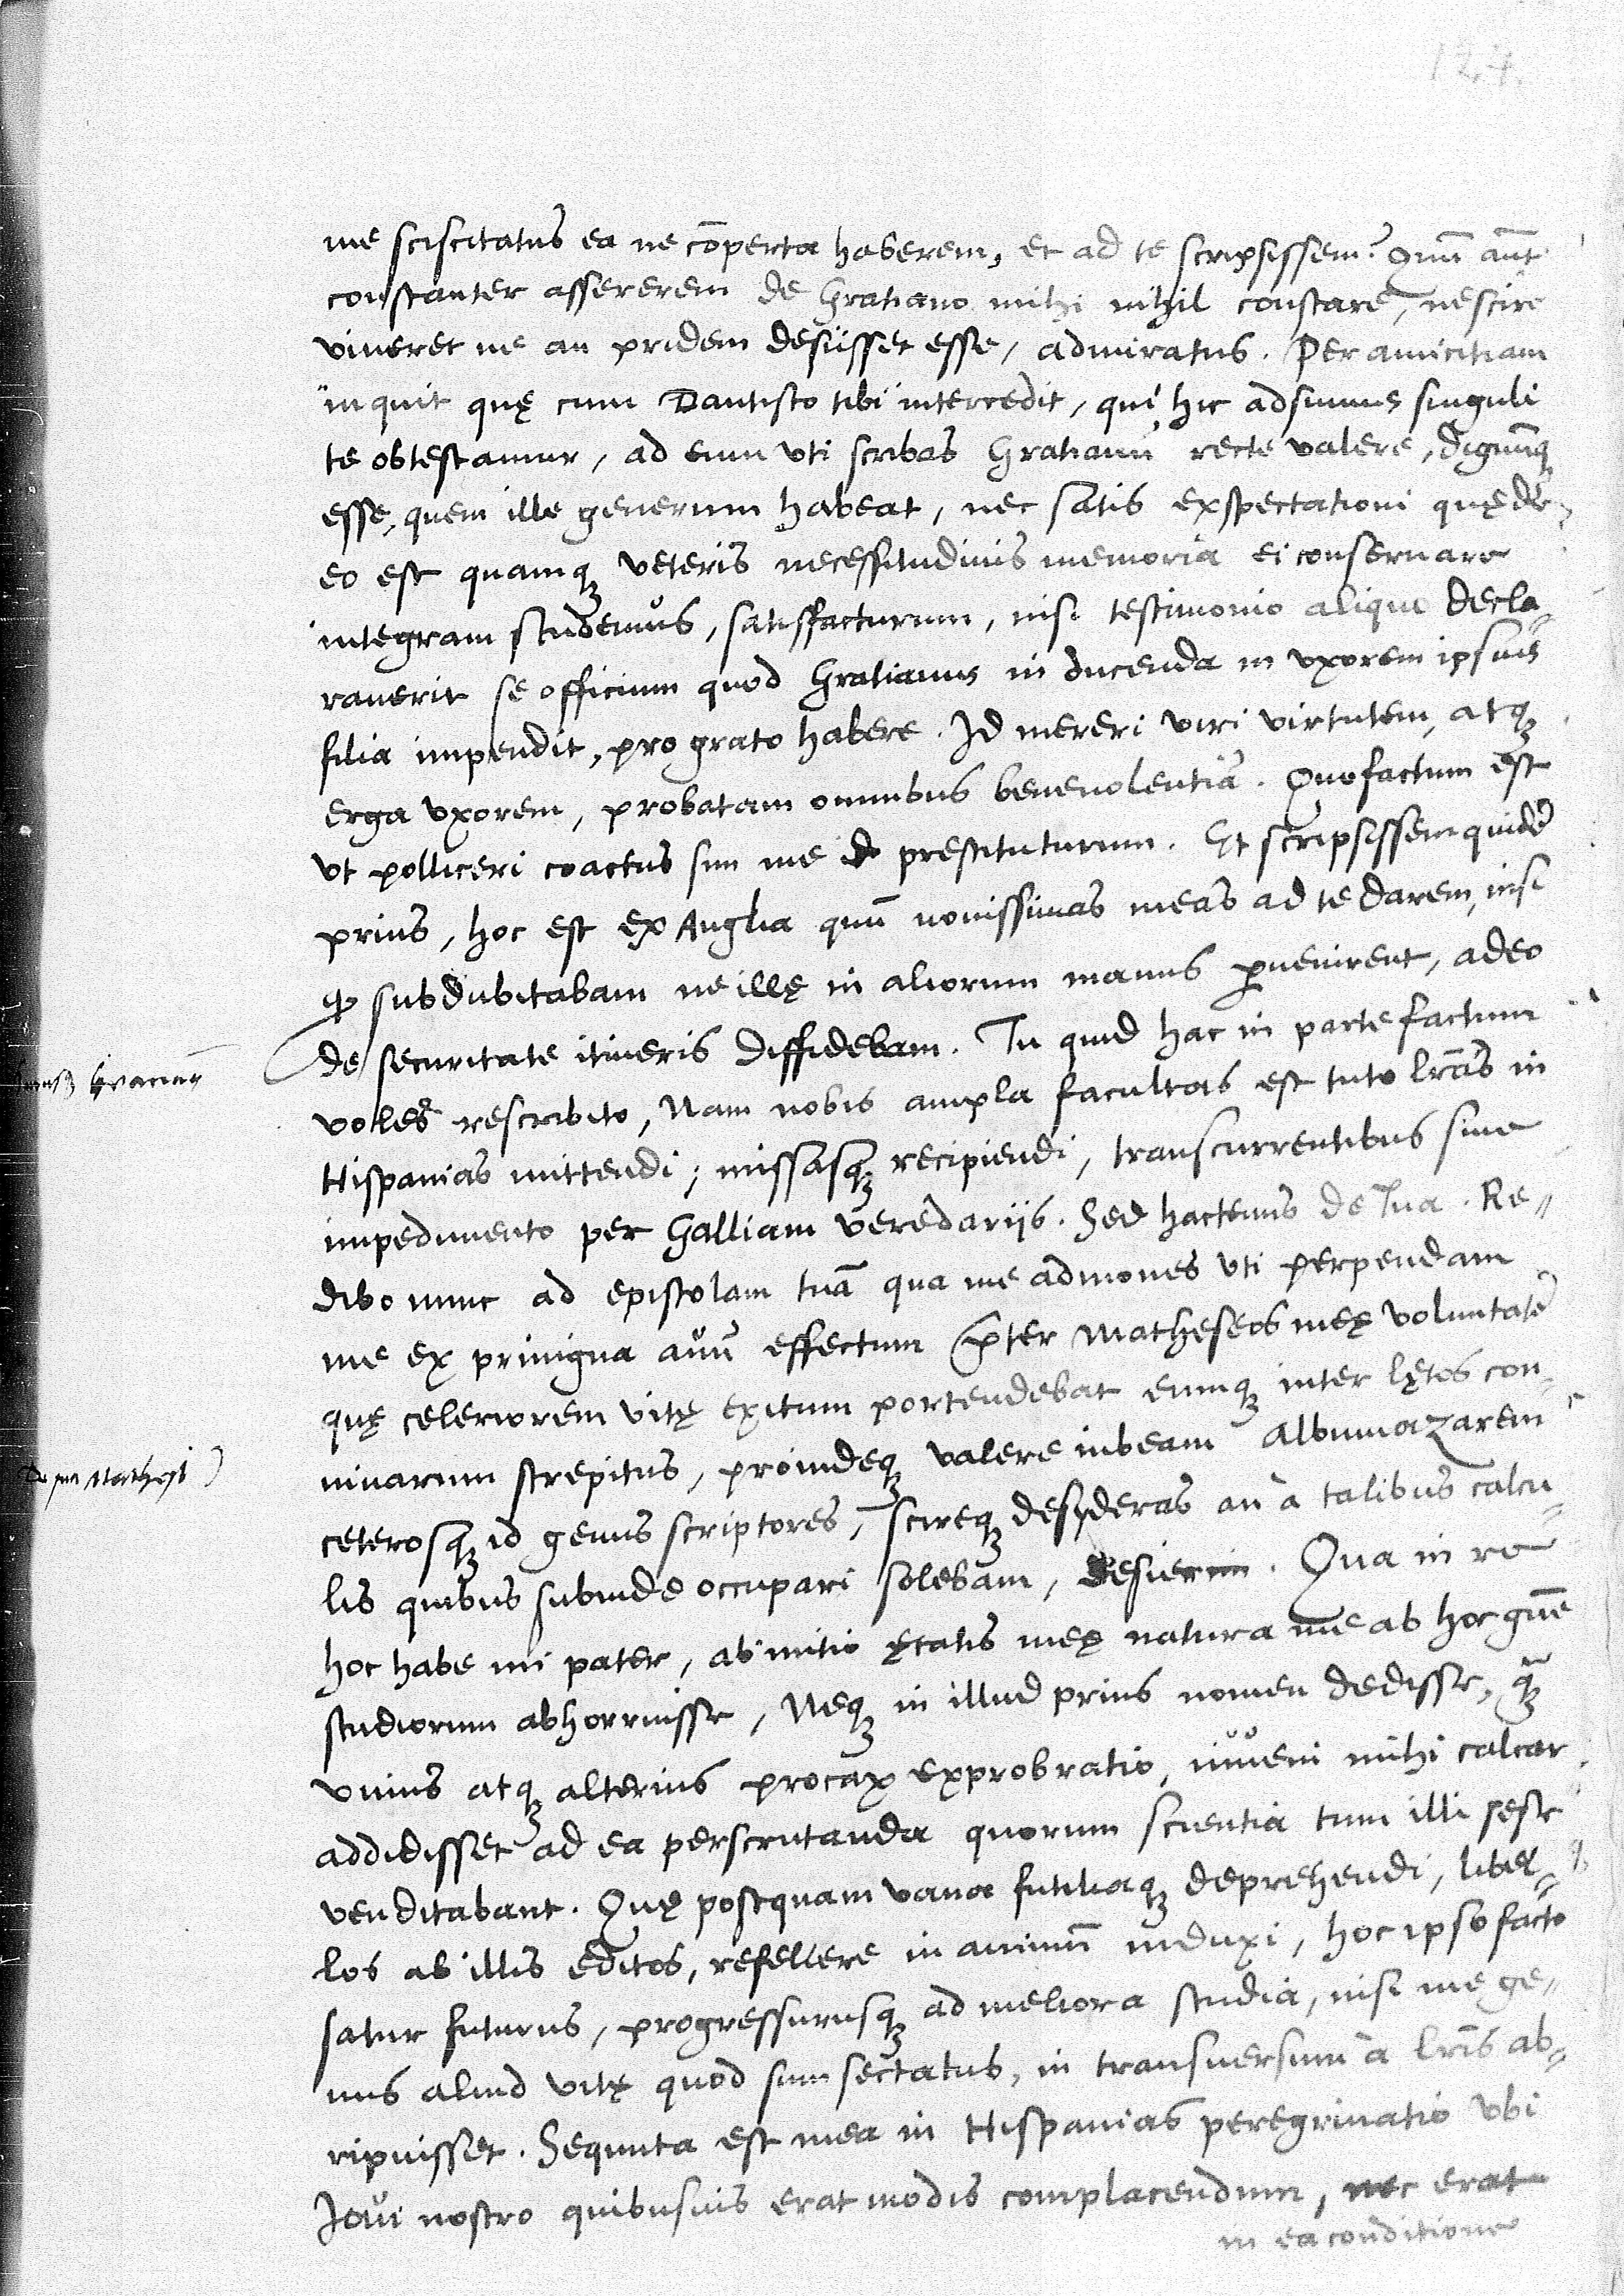 127.
me sciscitatus ea ne cōperta haberem, et ad te scripsissem? Quū aūt
constanter assererem de Gratiano mihi nihil constare, nescire
viueret ne an pridem desiisset esse, admiratus. Per amicitiam
inquit quę cum Dantisco tibi intercedit, qui hic adsumus singuli
te obtestamur, ad eum vti scribas Gratianū recte valere, dignumq
esse, quem ille generum habeat, nec satis exspectationi quę de
eo est quamq veteris necessitudinis memoria ei conseruare
integram studemus, satisfacturum, nisi testimonio aliquo decla-
rauerit se officium quod Gratianus in ducenda in vxorem ipsius
filia impendit, pro grato habere. Id mereri viri virtutem, atq
erga vxorem, probatam omnibus beneuolentiā. Quo factum est
vt polliceri coactus sim me id prestituturum. Et scripsissem quidē
prius, hoc est ex Anglia quū nouissimas meas ad te darem, nisi
ꝙ subdubitabam ne illę in aliorum manus ꝑuenirent, adeo
de securitate itineris diffidebam. Tu quid hac in parte factum
Gracian
voles rescribito, Nam nobis ampla facultas est tuto lr̄as in
Hispanias mittendi, missasq recipiendi, transcurrentibus sine
impedimento per Galliam veredariis. Sed hactenus de tua. Re-
dibo nunc ad epistolam tuā qua me admones vti perpendam
me ex priuigna auū effectum p̄ter Matheseos meę voluntatē
quę celeriorem vitę exitum portendebat eumq inter lętos con-
uiuarum strepitus, proindeq valere iubeam Albumazarem
Mathesi
ceterosq id genus scriptores, scireq desyderas an à talibus calcu-
lis quibus subinde occupari solebam, desierim. Qua in re
hoc habe mi pater, ab initio ętatis meę natura me ab hoc gn̄e
studiorum abhorruisse, Neq in illud prius nomen dedisse, q̄
vnius atq alterius procax exprobratio, iuueni mihi calcar
addidisset ad ea perscrutanda quorum scientia tum illi sese
venditabant. Quę postquam vana futiliaq deprehendi, libel-
los ab illis editos, refellere in animū induxi, hoc ipso facto
satur futurus, progressurusq ad meliora studia, nisi me ge-
nus aliud vitę quod sum sectatus, in transuersum à lr̄is ab-
ripuisset. Sequuta est mea in Hispanias peregrinatio vbi
Ioui nostro quibusuis erat modis complacendum, nec erat
in ea conditione